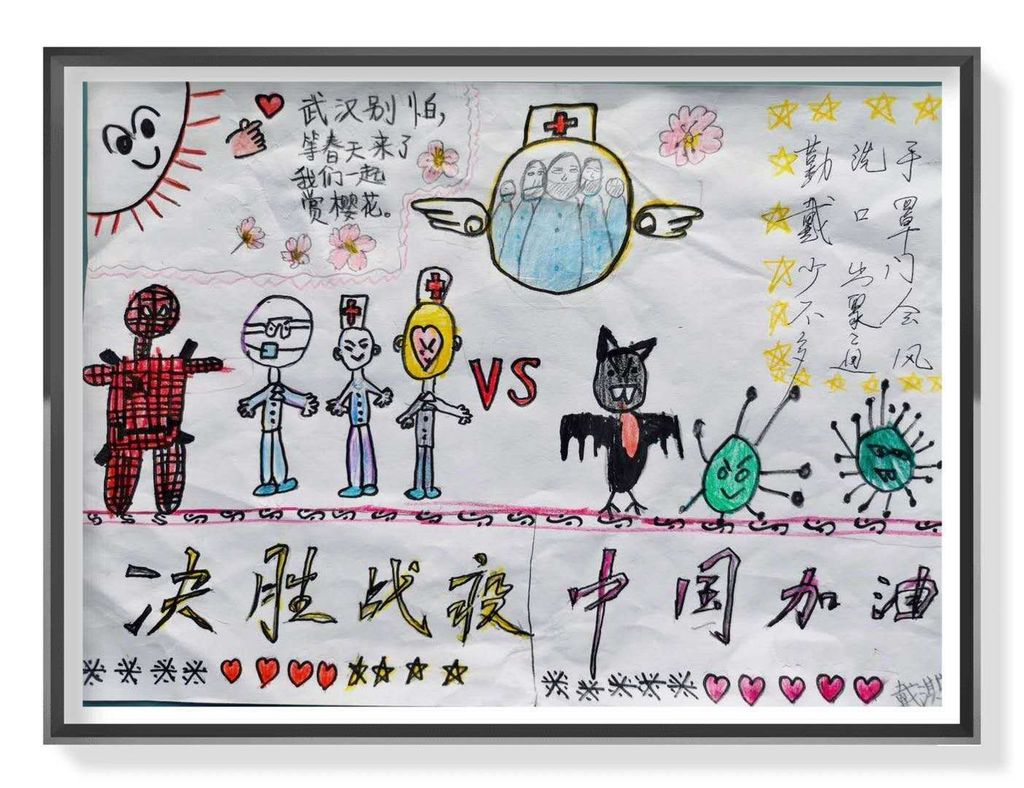 武汉别怕，
等春天来了
我们一起
赏樱花。
勤洗手
戴口罩
少出门
不聚会
多通风
VS
决胜战疫 中国加油